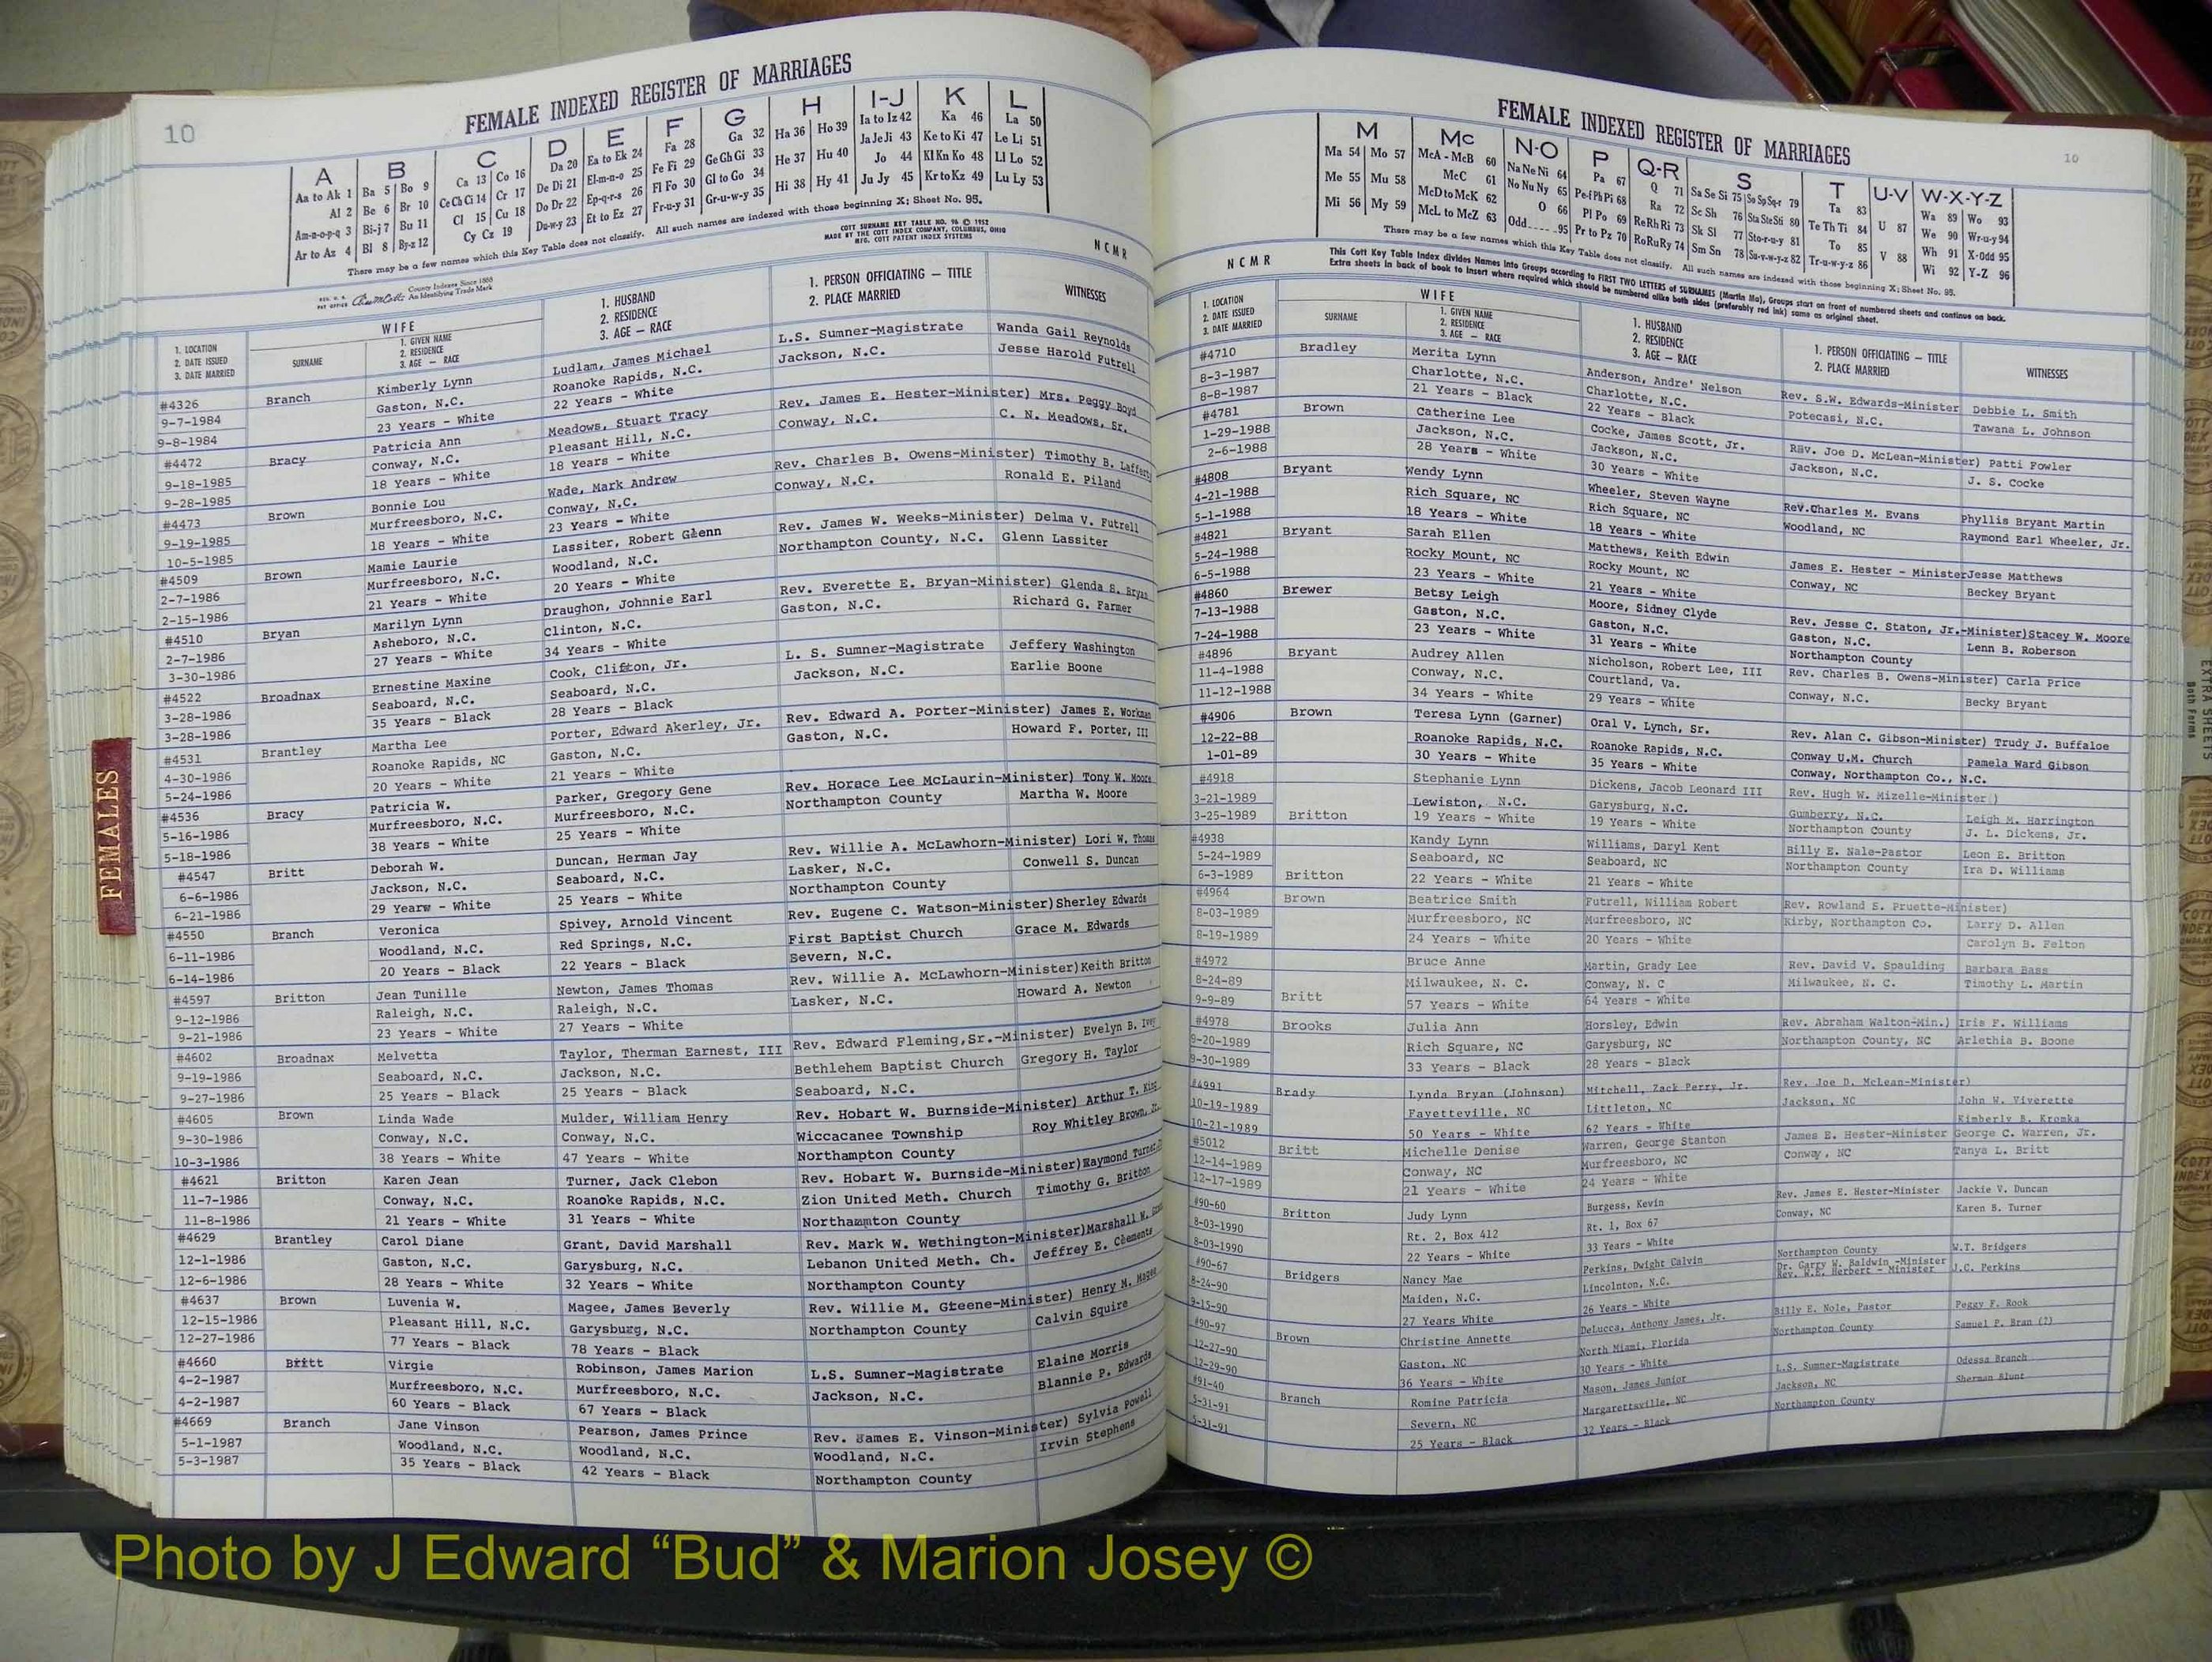 10
FEMALE INDEXED REGISTER OF MARRIAGES
A B C D E F G H I-J K L
Aa to Ak 1 Ba 5 Bo 9 Ca 13 Co 16 Da 20 Ea to Ek 24 Fa 28 Ga 32 Ha 36 Ho 39 Ia to Iz 42 Ka 46 La 50
Al 2 Be 6 Br 10 Ce Ch Ci 14 Cr 17 De Di 21 El-m-n-o 25 Fe Fi 29 Ge Gh Gi 33 He 37 Hu 40 Ja Je Ji 43 Ke to Ki 47 Le Li 51
Am-n-o-p-q 3 Bi-j 7 Bu 11 Cl 15 Cu 18 Do Dr 22 Ep-q-r-s 26 Fl Fo 30 Gl to Go 34 Hi 38 Hy 41 Jo 44 Kl Kn Ko 48 Ll Lo 52
Ar to Az 4 Bl 8 By-z 12 Cy Cz 19 Du-w-y 23 Et to Ez 27 Fr-u-y 31 Gr-u-w-y 35 Ju Jy 45 Kr to Kz 49 Lu Ly 53
There may be a few names which this Key Table does not classify. All such names are indexed with those beginning X; Sheet No. 95.
COTT SURNAME KEY TABLE NO. 96 © 1952
MADE BY THE COTT INDEX COMPANY, COLUMBUS, OHIO
MFG. COTT PATENT INDEX SYSTEMS
NCMR
County Indexes Since 1888
An Identifying Trade Mark
1. LOCATION
2. DATE ISSUED
3. DATE MARRIED
WIFE
SURNAME
1. GIVEN NAME
2. RESIDENCE
3. AGE — RACE
1. HUSBAND
2. RESIDENCE
3. AGE — RACE
1. PERSON OFFICIATING — TITLE
2. PLACE MARRIED
WITNESSES
#4326 Branch Kimberly Lynn Ludlam, James Michael L.S. Sumner-Magistrate Wanda Gail Reynolds
9-7-1984 Gaston, N.C. Roanoke Rapids, N.C. Jackson, N.C. Jesse Harold Futrell
9-8-1984 23 Years - White 22 Years - White
#4472 Bracy Patricia Ann Meadows, Stuart Tracy Rev. James E. Hester-Minister) Mrs. Peggy Boyd
9-18-1985 Conway, N.C. Pleasant Hill, N.C. Conway, N.C. C. N. Meadows, Sr.
9-28-1985 18 Years - White 18 Years - White
#4473 Brown Bonnie Lou Wade, Mark Andrew Rev. Charles B. Owens-Minister) Timothy B.
9-19-1985 Murfreesboro, N.C. Conway, N.C. Conway, N.C. Ronald E. Piland
10-5-1985 18 Years - White 23 Years - White
#4509 Brown Mamie Laurie Lassiter, Robert Glenn Rev. James W. Weeks-Minister) Delma V. Futrell
2-7-1986 Murfreesboro, N.C. Woodland, N.C. Northampton County, N.C. Glenn Lassiter
2-15-1986 21 Years - White 20 Years - White
#4510 Bryan Marilyn Lynn Draughon, Johnnie Earl Rev. Everette E. Bryan-Minister) Glenda S. Bryan
2-7-1986 Asheboro, N.C. Clinton, N.C. Gaston, N.C. Richard G. Farmer
3-30-1986 27 Years - White 34 Years - White
#4522 Broadnax Ernestine Maxine Cook, Clifton, Jr. L. S. Sumner-Magistrate Jeffery Washington
3-28-1986 Seaboard, N.C. Seaboard, N.C. Jackson, N.C. Earlie Boone
3-28-1986 35 Years - Black 28 Years - Black
#4531 Brantley Martha Lee Porter, Edward Akerley, Jr. Rev. Edward A. Porter-Minister) James E. Workman
4-30-1986 Roanoke Rapids, NC Gaston, N.C. Gaston, N.C. Howard F. Porter, III
5-24-1986 20 Years - White 21 Years - White
#4536 Bracy Patricia W. Parker, Gregory Gene Rev. Horace Lee McLaurin-Minister) Tony W. Moore
5-16-1986 Murfreesboro, N.C. Murfreesboro, N.C. Northampton County Martha W. Moore
5-18-1986 38 Years - White 25 Years - White
#4547 Britt Deborah W. Duncan, Herman Jay Rev. Willie A. McLawhorn-Minister) Lori W. Thomas
6-6-1986 Jackson, N.C. Seaboard, N.C. Lasker, N.C. Conwell S. Duncan
6-21-1986 29 Years - White 25 Years - White Northampton County
#4550 Branch Veronica Spivey, Arnold Vincent Rev. Eugene C. Watson-Minister) Sherley Edwards
6-11-1986 Woodland, N.C. Red Springs, N.C. First Baptist Church Grace M. Edwards
6-14-1986 20 Years - Black 22 Years - Black Severn, N.C.
#4597 Britton Jean Tunille Newton, James Thomas Rev. Willie A. McLawhorn-Minister) Keith Britton
9-12-1986 Raleigh, N.C. Raleigh, N.C. Lasker, N.C. Howard A. Newton
9-21-1986 23 Years - White 27 Years - White
#4602 Broadnax Melvetta Taylor, Therman Earnest, III Rev. Edward Fleming,Sr.-Minister) Evelyn B. Ivey
9-19-1986 Seaboard, N.C. Jackson, N.C. Bethlehem Baptist Church Gregory H. Taylor
9-27-1986 25 Years - Black 25 Years - Black Seaboard, N.C.
#4605 Brown Linda Wade Mulder, William Henry Rev. Hobart W. Burnside-Minister) Arthur T. King
9-30-1986 Conway, N.C. Conway, N.C. Wiccacanee Township Roy Whitley Brown, Jr.
10-3-1986 38 Years - White 47 Years - White Northampton County
#4621 Britton Karen Jean Turner, Jack Clebon Rev. Hobart W. Burnside-Minister) Raymond
11-7-1986 Conway, N.C. Roanoke Rapids, N.C. Zion United Meth. Church Timothy G. Britton
11-8-1986 21 Years - White 31 Years - White Northammton County
#4629 Brantley Carol Diane Grant, David Marshall Rev. Mark W. Wethington-Minister) Marshall W. Grant
12-1-1986 Gaston, N.C. Garysburg, N.C. Lebanon United Meth. Ch. Jeffrey E. Clements
12-6-1986 28 Years - White 32 Years - White Northampton County
#4637 Brown Luvenia W. Magee, James Beverly Rev. Willie M. Greene-Minister) Henry M. Magee
12-15-1986 Pleasant Hill, N.C. Garysburg, N.C. Northampton County Calvin Squire
12-27-1986 77 Years - Black 78 Years - Black
#4660 Britt Virgie Robinson, James Marion L.S. Sumner-Magistrate Elaine Morris
4-2-1987 Murfreesboro, N.C. Murfreesboro, N.C. Jackson, N.C. Blannie P. Edwards
4-2-1987 60 Years - Black 67 Years - Black
#4669 Branch Jane Vinson Pearson, James Prince Rev. James E. Vinson-Minister) Sylvia Powell
5-1-1987 Woodland, N.C. Woodland, N.C. Woodland, N.C. Irvin Stephens
5-3-1987 35 Years - Black 42 Years - Black Northampton County
FEMALES
FEMALE INDEXED REGISTER OF MARRIAGES
10
M Mc N-O P Q-R S T U-V W-X-Y-Z
Ma 54 Mo 57 McA - McB 60 Na Ne Ni 64 Pa 67 Q 71 Sa Se Si 75 So Sp Sq-r 79 Ta 83 U 87 Wa 89 Wo 93
Me 55 Mu 58 McC 61 No Nu Ny 65 Pe-f Ph Pi 68 Ra 72 Sc Sh 76 Sta Ste Sti 80 Te Th Ti 84 V 88 We 90 Wr-u-y 94
Mi 56 My 59 McD to McK 62 O 66 Pl Po 69 Re Rh Ri 73 Sk Sl 77 Sto-r-u-y 81 To 85 Wh 91 X-Odd 95
McL to McZ 63 Odd 95 Pr to Pz 70 Ro Ru Ry 74 Sm Sn 78 Su-v-w-y-z 82 Tr-u-w-y-z 86 Wi 92 Y-Z 96
There may be a few names which this Key Table does not classify. All such names are indexed with those beginning X; Sheet No. 95.
NCMR
This Cott Key Table Index divides Names into Groups according to FIRST TWO LETTERS of SURNAMES (Martin Ma), Groups start on front of numbered sheets and continue on back.
Extra sheets in back of book to insert where required which should be numbered alike both sides (preferably red ink) same as original sheet.
1. LOCATION
2. DATE ISSUED
3. DATE MARRIED
WIFE
SURNAME
1. GIVEN NAME
2. RESIDENCE
3. AGE — RACE
1. HUSBAND
2. RESIDENCE
3. AGE — RACE
1. PERSON OFFICIATING — TITLE
2. PLACE MARRIED
WITNESSES
#4710 Bradley Merita Lynn Anderson, Andre' Nelson Rev. S.W. Edwards-Minister Debbie L. Smith
8-3-1987 Charlotte, N.C. Charlotte, N.C. Potecasi, N.C. Tawana L. Johnson
8-8-1987 21 Years - Black 22 Years - Black
#4781 Brown Catherine Lee Cocke, James Scott, Jr. Rev. Joe D. McLean-Minister) Patti Fowler
1-29-1988 Jackson, N.C. Jackson, N.C. Jackson, N.C. J. S. Cocke
2-6-1988 28 Years - White 30 Years - White
#4808 Bryant Wendy Lynn Wheeler, Steven Wayne Rev.Charles M. Evans Phyllis Bryant Martin
4-21-1988 Rich Square, NC Rich Square, NC Woodland, NC Raymond Earl Wheeler, Jr.
5-1-1988 18 Years - White 18 Years - White
#4821 Bryant Sarah Ellen Matthews, Keith Edwin James E. Hester - Minister Jesse Matthews
5-24-1988 Rocky Mount, NC Rocky Mount, NC Conway, NC Beckey Bryant
6-5-1988 23 Years - White 21 Years - White
#4860 Brewer Betsy Leigh Moore, Sidney Clyde Rev. Jesse C. Staton, Jr.-Minister) Stacey W. Moore
7-13-1988 Gaston, N.C. Gaston, N.C. Gaston, N.C. Lenn B. Roberson
7-24-1988 23 Years - White 31 Years - White Northampton County
#4896 Bryant Audrey Allen Nicholson, Robert Lee, III Rev. Charles B. Owens-Minister) Carla Price
11-4-1988 Conway, N.C. Courtland, Va. Conway, N.C. Becky Bryant
11-12-1988 34 Years - White 29 Years - White
#4906 Brown Teresa Lynn (Garner) Oral V. Lynch, Sr. Rev. Alan C. Gibson-Minister) Trudy J. Buffaloe
12-22-88 Roanoke Rapids, N.C. Roanoke Rapids, N.C. Conway U.M. Church Pamela Ward Gibson
1-01-89 30 Years - White 35 Years - White Conway, Northampton Co., N.C.
#4918 Stephanie Lynn Dickens, Jacob Leonard III Rev. Hugh W. Mizelle-Minister)
3-21-1989 Lewiston, N.C. Garysburg, N.C. Gumberry, N.C. Leigh M. Harrington
3-25-1989 Britton 19 Years - White 19 Years - White Northampton County J. L. Dickens, Jr.
#4938 Kandy Lynn Williams, Daryl Kent Billy E. Nale-Pastor Leon E. Britton
5-24-1989 Seaboard, NC Seaboard, NC Northampton County Ira D. Williams
6-3-1989 Britton 22 Years - White 21 Years - White
#4964 Brown Beatrice Smith Futrell, William Robert Rev. Rowland S. Pruette-Minister)
8-03-1989 Murfreesboro, NC Murfreesboro, NC Kirby, Northampton Co. Larry D. Allen
8-19-1989 24 Years - White 20 Years - White Carolyn B. Felton
#4972 Bruce Anne Martin, Grady Lee Rev. David V. Spaulding Barbara Bass
8-24-89 Milwaukee, N. C. Conway, N. C Milwaukee, N. C. Timothy L. Martin
9-9-89 Britt 57 Years - White 64 Years - White
#4978 Brooks Julia Ann Horsley, Edwin Rev. Abraham Walton-Min.) Iris F. Williams
9-20-1989 Rich Square, NC Garysburg, NC Northampton County, NC Arlethia B. Boone
9-30-1989 33 Years - Black 28 Years - Black
#4991 Brady Lynda Bryan (Johnson) Mitchell, Zack Perry, Jr. Rev. Joe D. McLean-Minister)
10-19-1989 Fayetteville, NC Littleton, NC Jackson, NC John W. Viverette
10-21-1989 50 Years - White 62 Years - White Kimberly B. Kromka
#5012 Britt Michelle Denise Warren, George Stanton James E. Hester-Minister George C. Warren, Jr.
12-14-1989 Conway, NC Murfreesboro, NC Conway, NC Tanya L. Britt
12-17-1989 21 Years - White 24 Years - White
#90-60 Britton Judy Lynn Burgess, Kevin Rev. James E. Hester-Minister Jackie V. Duncan
8-03-1990 Rt. 2, Box 412 Rt. 1, Box 67 Conway, NC Karen B. Turner
8-03-1990 22 Years - White 33 Years - White
#90-67 Bridgers Nancy Mae Perkins, Dwight Calvin Northampton County W.T. Bridgers
8-24-90 Maiden, N.C. Lincolnton, N.C. Dr. Garry W. Baldwin -Minister J.C. Perkins
9-15-90 27 Years White 26 Years - White Rev. W.E. Herbert - Minister
#90-97 Brown Christine Annette DeLucca, Anthony James, Jr. Billy E. Nole, Pastor Peggy F. Rook
12-27-90 Gaston, NC North Miami, Florida Northampton County Samuel P. Bran (?)
12-29-90 36 Years - White 30 Years - White
#91-40 Branch Romine Patricia Mason, James Junior L.S. Sumner-Magistrate Odessa Branch
5-31-91 Severn, NC Margarettsville, NC Jackson, NC Sherman Blunt
5-31-91 25 Years - Black 32 Years - Black Northampton County
EXTRA SHEETS
Both Forms
Photo by J Edward “Bud” & Marion Josey ©